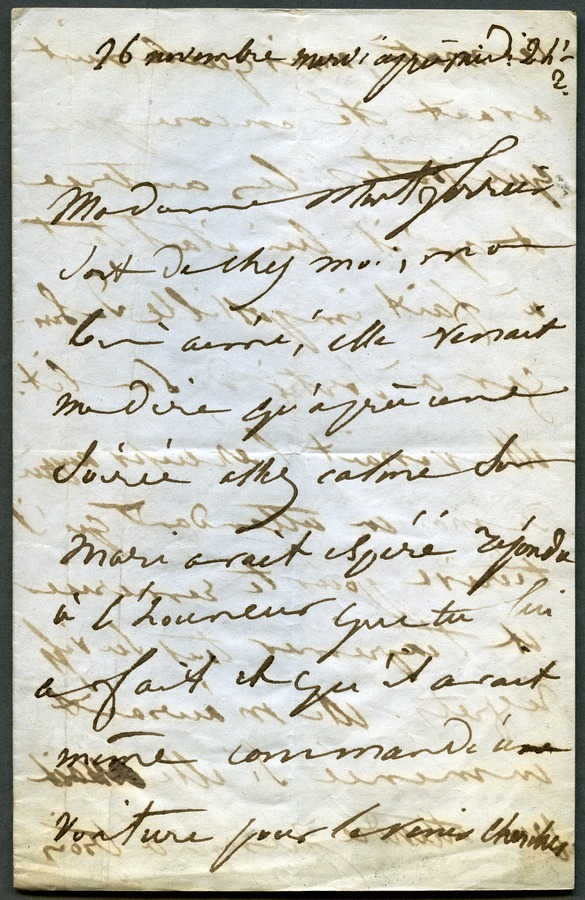 26 novembre merdi après midi 2 h 1/2.
Madame Montferrier
sort de chez moi, mon
bien aimé, elle venait
me dire qu'après une
soirée assez calme son
mari avait espéré répondre
à l'honneur que tu lui
as fait et qu'il avait
même commandé une
voiture pour le venir chercher